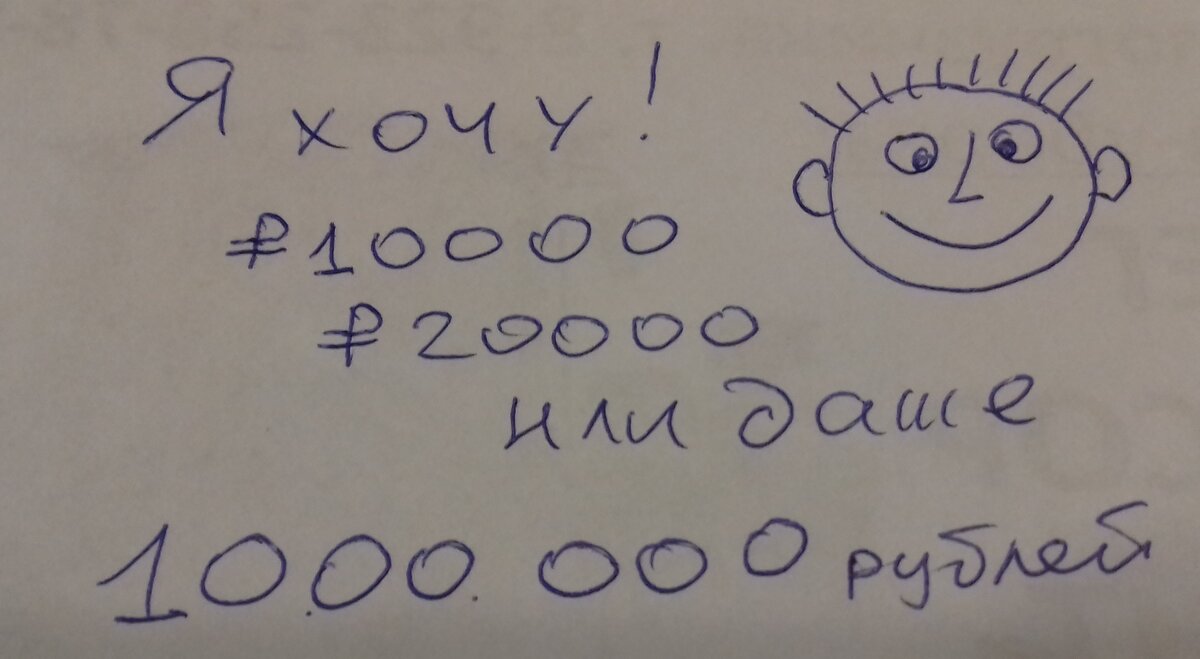 Я хочу!
₽10000
₽20000
или даше
10.00.000 рублей